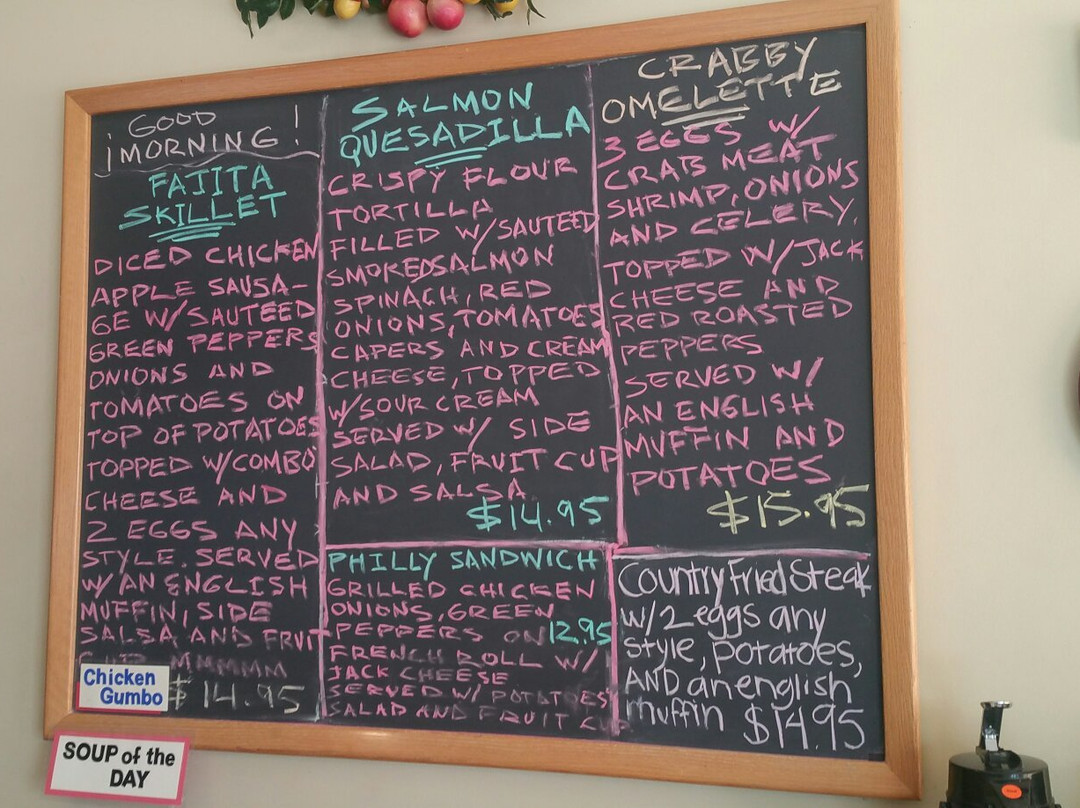 ¡GOOD
MORNING!
FAJITA
SKILLET
DICED CHICKEN
APPLE SAUSA-
GE W/SAUTEED
GREEN PEPPERS
ONIONS AND
TOMATOES ON
TOP OF POTATOES
TOPPED W/COMBO
CHEESE AND
2 EGGS ANY
STYLE. SERVED
W/AN ENGLISH
MUFFIN, SIDE
SALSA AND FRUIT
MMMMM
$14.95
Chicken
Gumbo
SOUP of the
DAY
SALMON
QUESADILLA
CRISPY FLOUR
TORTILLA
FILLED W/SAUTEED
SMOKEDSALMON
SPINACH, RED
ONIONS, TOMATOES
CAPERS AND CREAM
CHEESE, TOPPED
W/SOUR CREAM
SERVED W/ SIDE
SALAD, FRUIT CUP
AND SALSA
$14.95
PHILLY SANDWICH
GRILLED CHICKEN
ONIONS, GREEN
PEPPERS ON 12.95
FRENCH ROLL W/
JACK CHEESE
SERVED W/ POTATOES
SALAD AND FRUIT CUP
CRABBY
OMELETTE
3 EGGS W/
CRAB MEAT
SHRIMP, ONIONS
AND CELERY.
TOPPED W/JACK
CHEESE AND
RED ROASTED
PEPPERS
SERVED W/
AN ENGLISH
MUFFIN AND
POTATOES
$15.95
Country Fried Steak
w/2 eggs any
style, potatoes,
AND an english
muffin $14.95